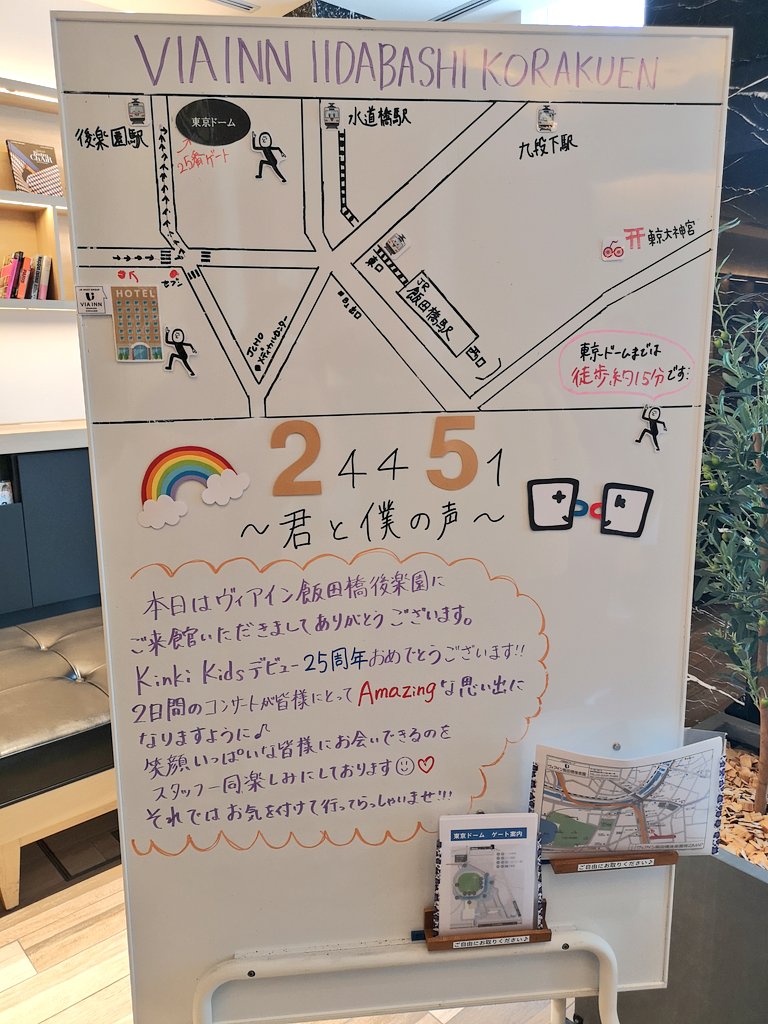 VIA INN IIDABASHI KORAKUEN
後楽園駅
東京ドーム
25番ゲート
水道橋駅
九段下駅
東京大神宮
東口
JR
飯田橋駅
西口
セブン
VIA INN
HOTEL
JCHO
メディカルセンター
東京ドームまでは
徒歩約15分です!
24451
～君と僕の声～
本日はヴィアイン飯田橋後楽園に
ご来館いただきましてありがとうございます。
Kinki Kidsデビュー25周年おめでとうございます!!
2日間のコンサートが皆様にとってAmazingな思い出に
なりますように♪
笑顔いっぱいな皆様にお会いできるのを
スタッフ一同楽しみにしております☺♡
それではお気を付けて行ってらっしゃいませ!!!
東京ドーム ゲート案内
ご自由にお取りください♪
ご自由にお取りください♪